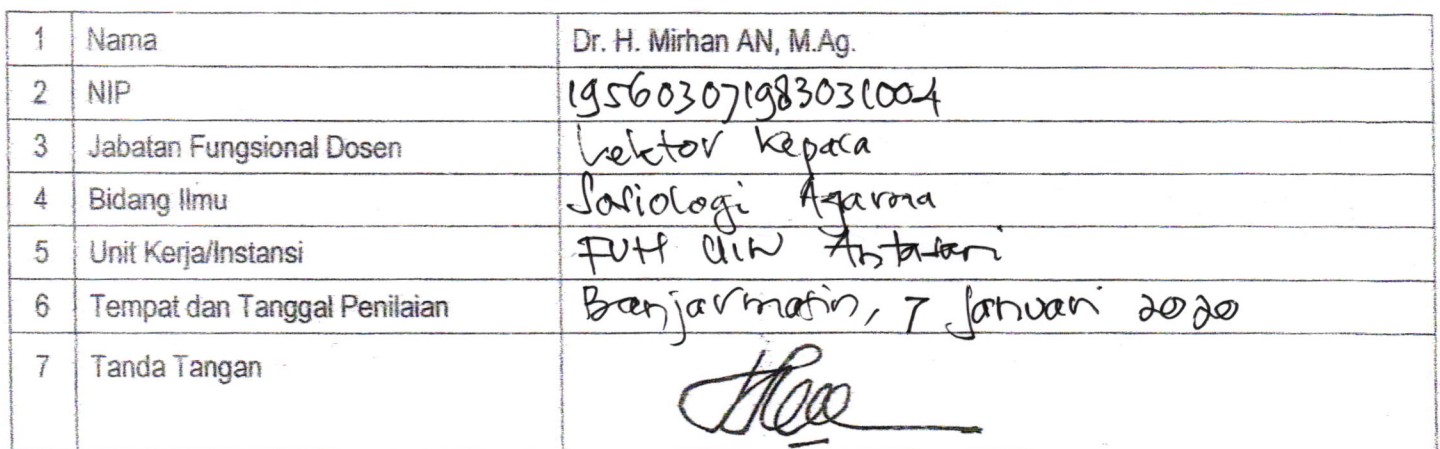 1 Nama Dr. H. Mirhan AN, M.Ag.
2 NIP 195603071983031004
3 Jabatan Fungsional Dosen Lektor Kepala
4 Bidang Ilmu Sosiologi Agama
5 Unit Kerja/Instansi FUH UIN Antasari
6 Tempat dan Tanggal Penilaian Banjarmasin, 7 Januari 2020
7 Tanda Tangan